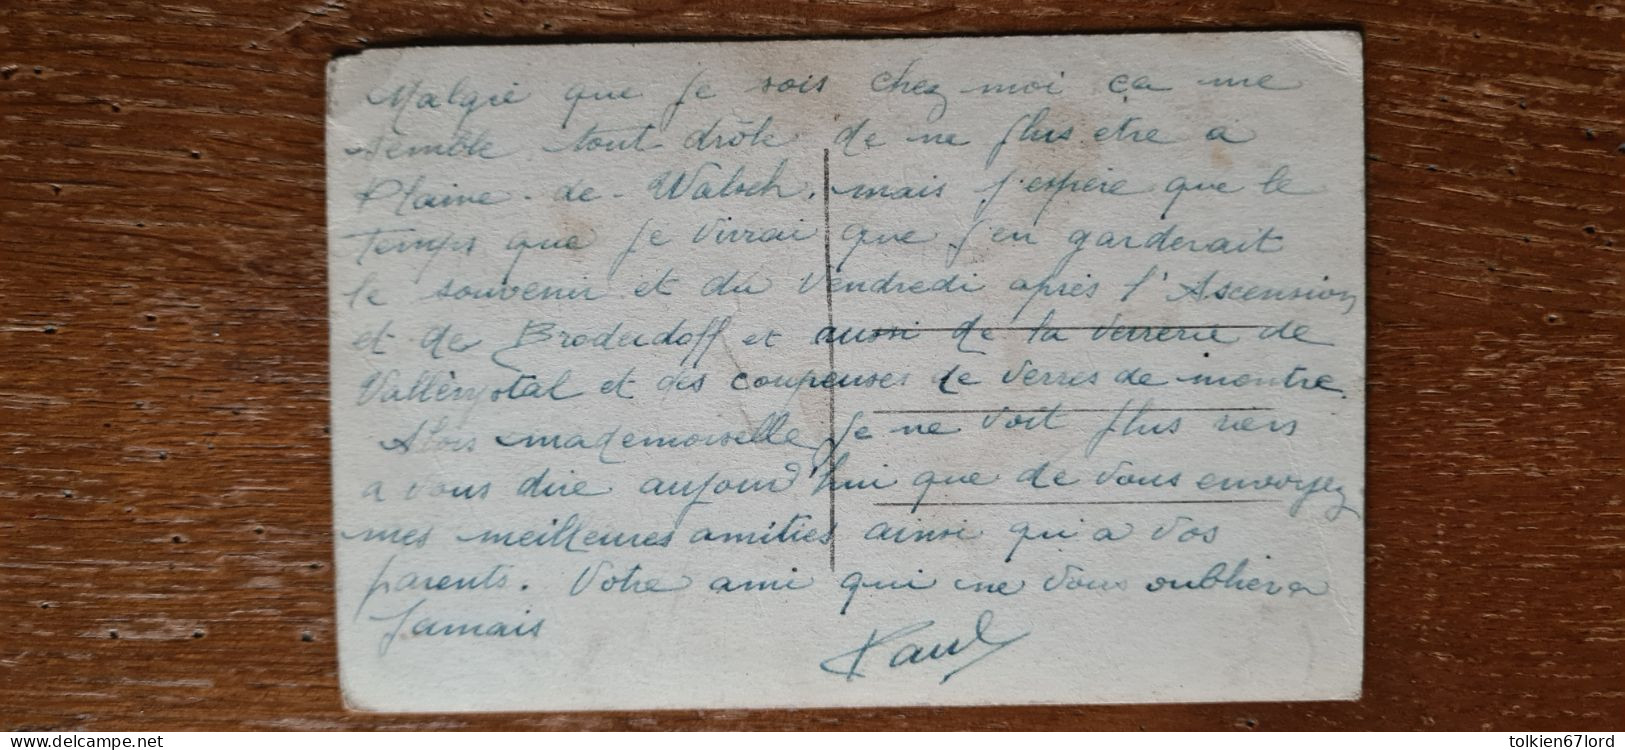 Malgré que je sois chez moi ça me
semble tout drôle de ne plus etre a
Plaine-de-Walsch, mais j'espère que le
Temps que je vivrai que j'en garderait
le souvenir et du Vendredi après l'Ascension
et de Broderdoff et aussi de la Verrerie de
Vallérystal et des coupeuses de verres de montre.
Alors mademoiselle je ne voit plus rien
a vous dire aujourd'hui que de vous envoyez
mes meilleures amitiés ainsi qu'a vos
parents. Votre ami qui ne vous oubliera
Jamais
Paul
tolkien67lord